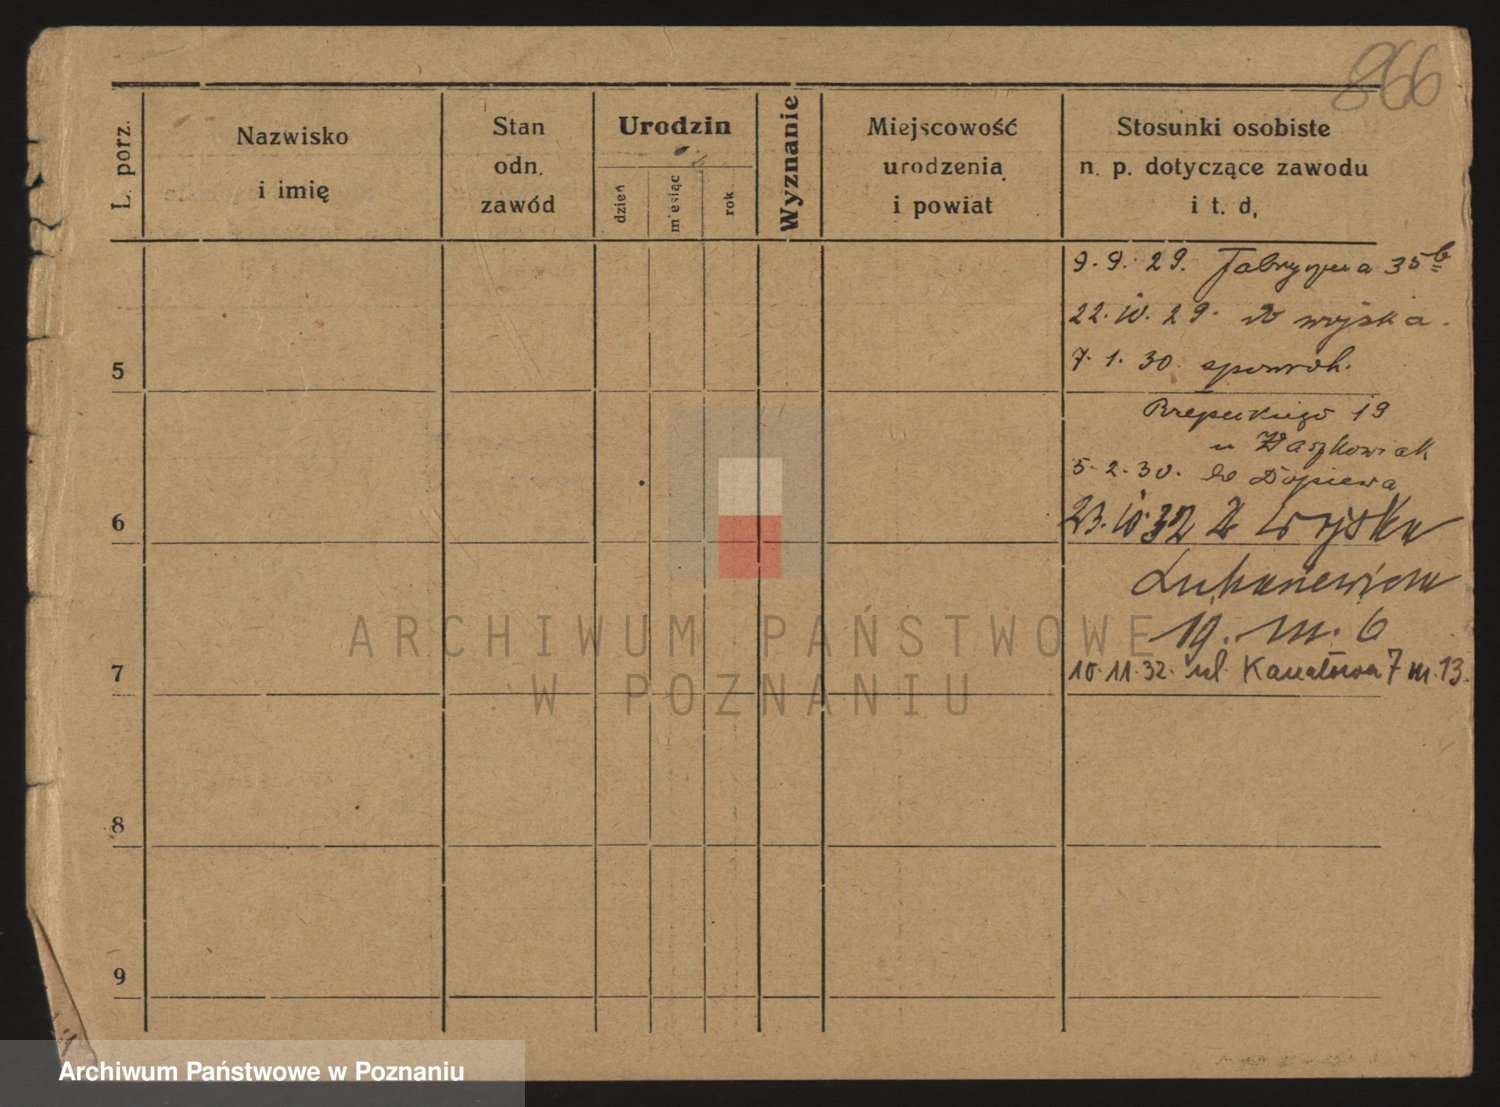 866
L. porz.
Nazwisko
i imię
Stan
odn.
zawód
Urodzin
dzień
miesiąc
rok
Wyznanie
Miejscowość
urodzenia
i powiat
Stosunki osobiste
n. p. dotyczące zawodu
i t. d.
9. 9. 29. Fabryczna 35 b
22. IV. 29. do wojska.
5
7. 1. 30. spowrot.
19
u Waszkowiak
5. 2. 30. do Dopiewa
6
23. IV. 32 z wojska
Łukaszewicza
19. m. 6
7
10. 11. 32. ul. Kanałowa 7 m. 13.
8
9
ARCHIWUM PAŃSTWOWE
W POZNANIU
Archiwum Państwowe w Poznaniu